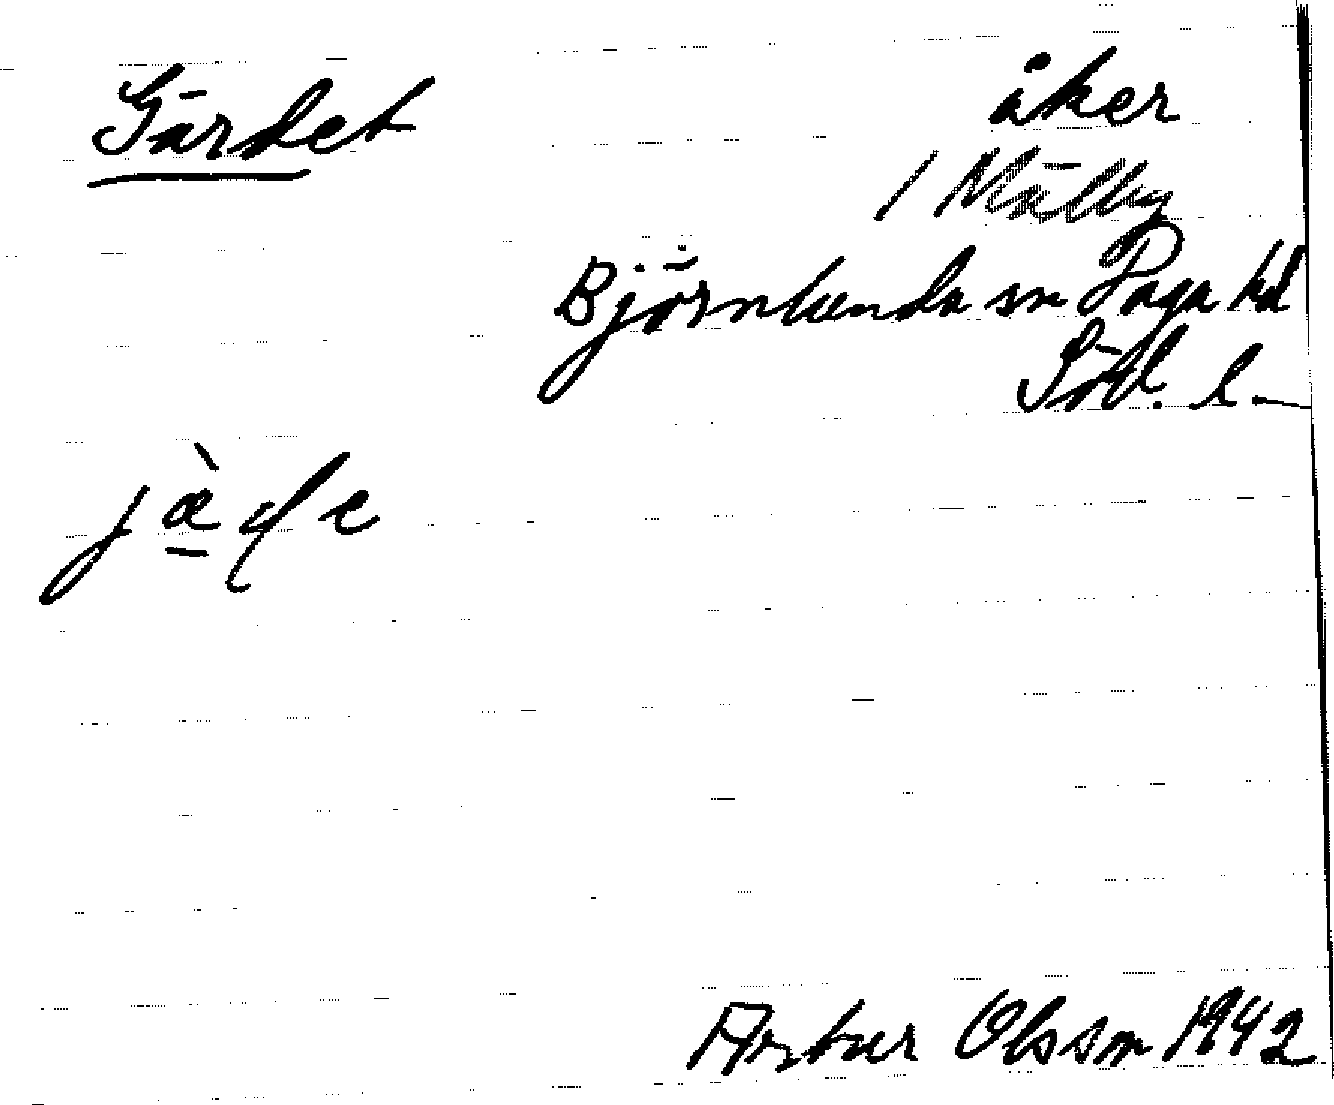 Gärdet
åker
/ Mälby
Björnlunda sn Daga hd
Söd. l.
Artur Olsson 1942